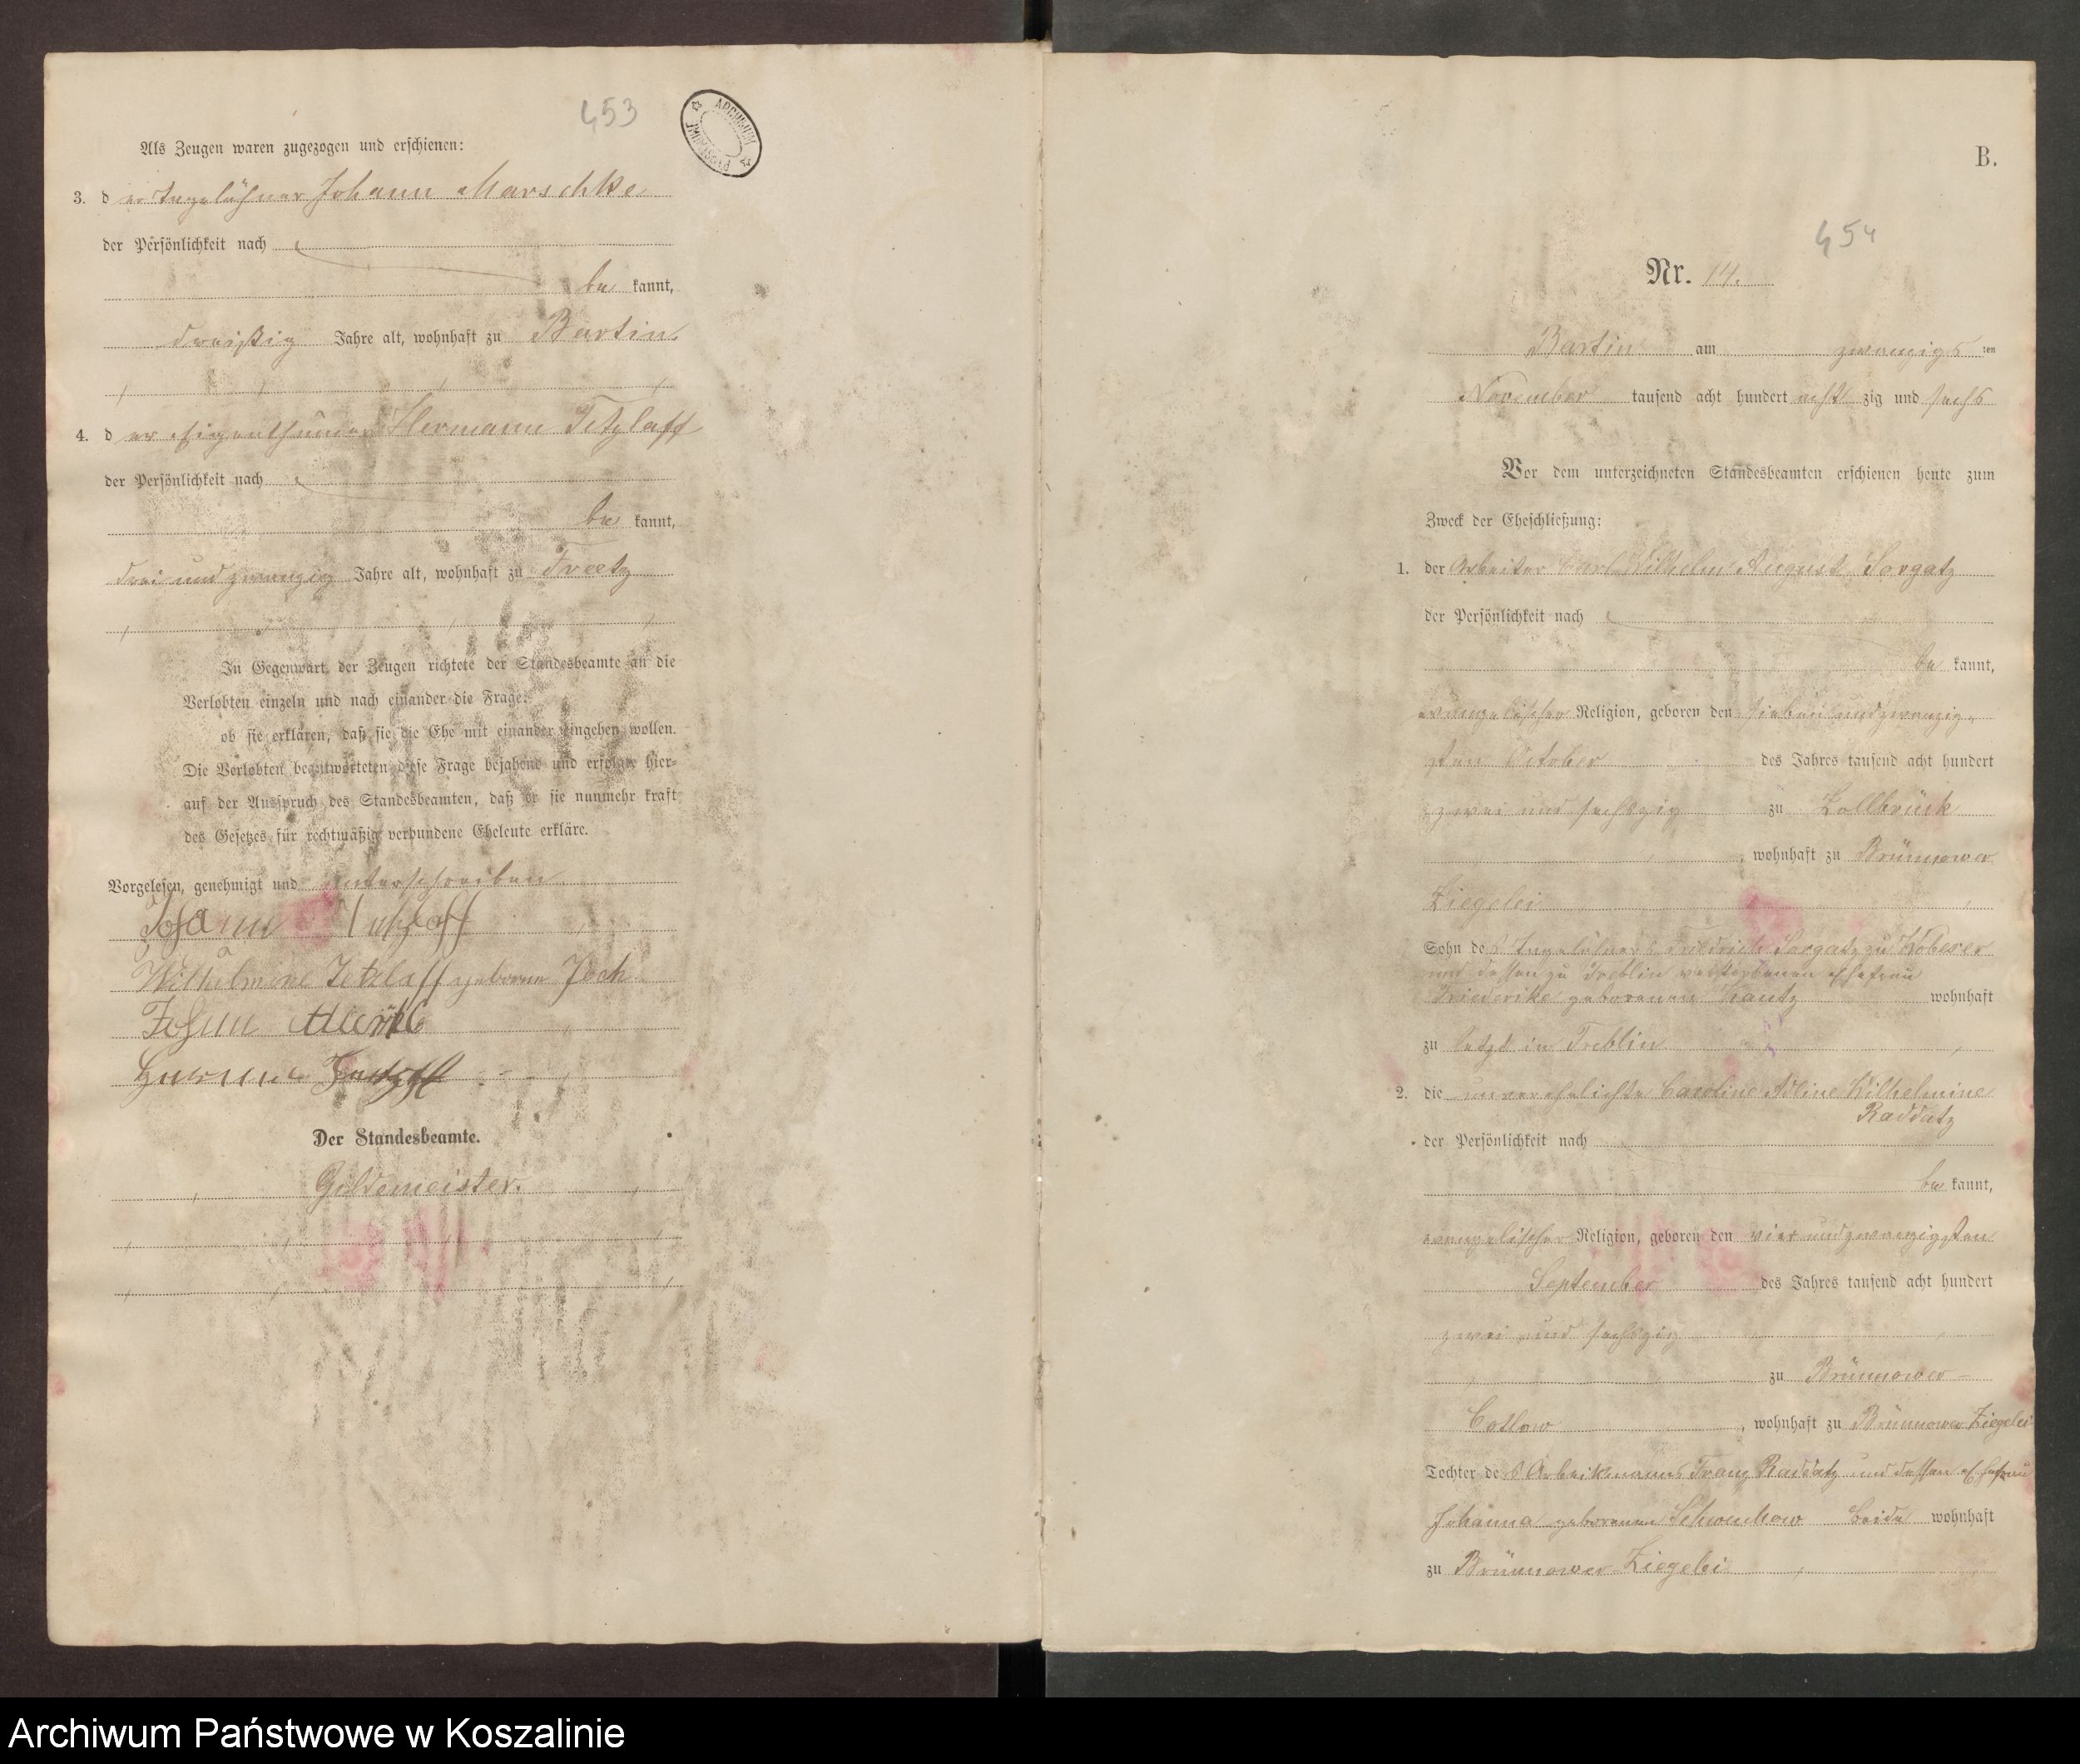 453
ARCHIWUM PAŃSTWOWE
Als Zeugen waren zugezogen und erschienen:
3. d er Tagelöhner Johann Marschke
der Persönlichkeit nach
be kannt,
dreißig Jahre alt, wohnhaft zu Bartin
4. d er Eigenthümer Hermann Tetzlaff
der Persönlichkeit nach
be kannt,
drei und zwanzig Jahre alt, wohnhaft zu Treetz
In Gegenwart der Zeugen richtete der Standesbeamte an die
Verlobten einzeln und nach einander die Frage:
ob sie erklären, daß sie die Ehe mit einander eingehen wollen.
Die Verlobten beantworteten diese Frage bejahend und erfolgte hier-
auf der Ausspruch des Standesbeamten, daß er sie nunmehr kraft
des Gesetzes für rechtmäßig verbundene Eheleute erkläre.
Vorgelesen, genehmigt und unterschrieben
Johann Tetzlaff
Wilhelmine Tetzlaff geborene Jech
Johann
Der Standesbeamte.
Gildemeister.
B.
454
Nr. 14.
Bartin am zwanzigs ten
November tausend acht hundert acht zig und sechs
Vor dem unterzeichneten Standesbeamten erschienen heute zum
Zweck der Eheschließung:
1. der Arbeiter Carl Wilhelm August Sorgatz
der Persönlichkeit nach
be kannt,
evangelischer Religion, geboren den sieben und zwanzig-
sten October des Jahres tausend acht hundert
zwei und sechszig zu Zollbrück
, wohnhaft zu Brünnower
Ziegelei
Sohn des Tagelöhners Friedrich Sorgatz zu
und dessen zu Treblin verstorbenen Ehefrau
Friederike geborenen Kautz wohnhaft
zu letzt in Treblin
2. die unverehelichte Caroline Adline Wilhelmine
Raddatz
der Persönlichkeit nach
be kannt,
evangelischer Religion, geboren den vier und zwanzigsten
September des Jahres tausend acht hundert
zwei und sechszig
zu Brünnower-
Cotlow, wohnhaft zu Brünnower Ziegelei
Tochter des Arbeitsmanns Franz Raddatz und dessen Ehefrau
Johanna geborenen Schwuchow beide wohnhaft
zu Brünnower Ziegelei
Archiwum Państwowe w Koszalinie